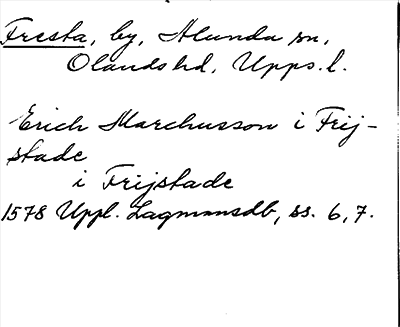 Fresta, by, Alunda sn,
Olands hd, Upps. l.
Erich Marchusson i Frij-
stade
i Frijstade
1578 Uppl. Lagmansdb, ss. 6, 7.